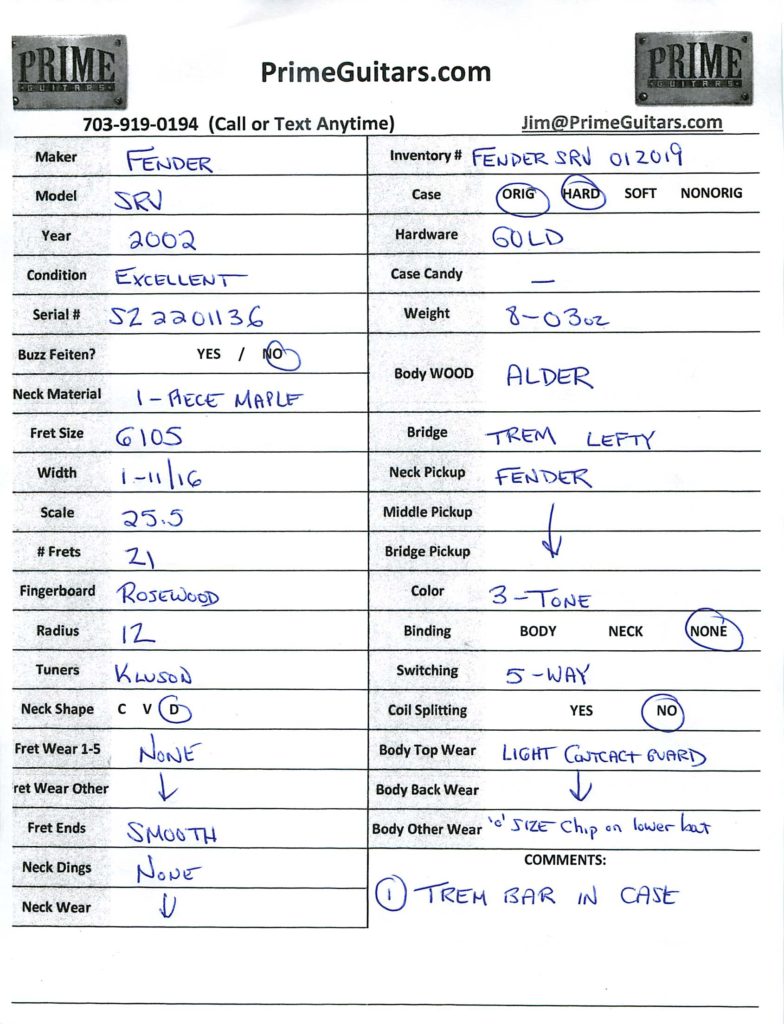 PRIME
GUITARS
PrimeGuitars.com
PRIME
GUITARS
703-919-0194 (Call or Text Anytime)
Jim@PrimeGuitars.com
Maker FENDER
Model SRV
Year 2002
Condition EXCELLENT
Serial # SZ 2201136
Buzz Feiten? YES / NO
Neck Material 1-PIECE MAPLE
Fret Size 6105
Width 1-11/16
Scale 25.5
# Frets 21
Fingerboard ROSEWOOD
Radius 12
Tuners KLUSON
Neck Shape C V D
Fret Wear 1-5 NONE
ret Wear Other ↓
Fret Ends SMOOTH
Neck Dings NONE
Neck Wear ↓
Inventory # FENDER SRV 012019
Case ORIG HARD SOFT NONORIG
Hardware GOLD
Case Candy —
Weight 8-03oz
Body WOOD ALDER
Bridge TREM LEFTY
Neck Pickup FENDER
Middle Pickup ↓
Bridge Pickup
Color 3-TONE
Binding BODY NECK NONE
Switching 5-WAY
Coil Splitting YES NO
Body Top Wear LIGHT CONTCACT GUARD
Body Back Wear ↓
Body Other Wear 'o' SIZE Chip on lower bout
COMMENTS:
1 TREM BAR IN CASE